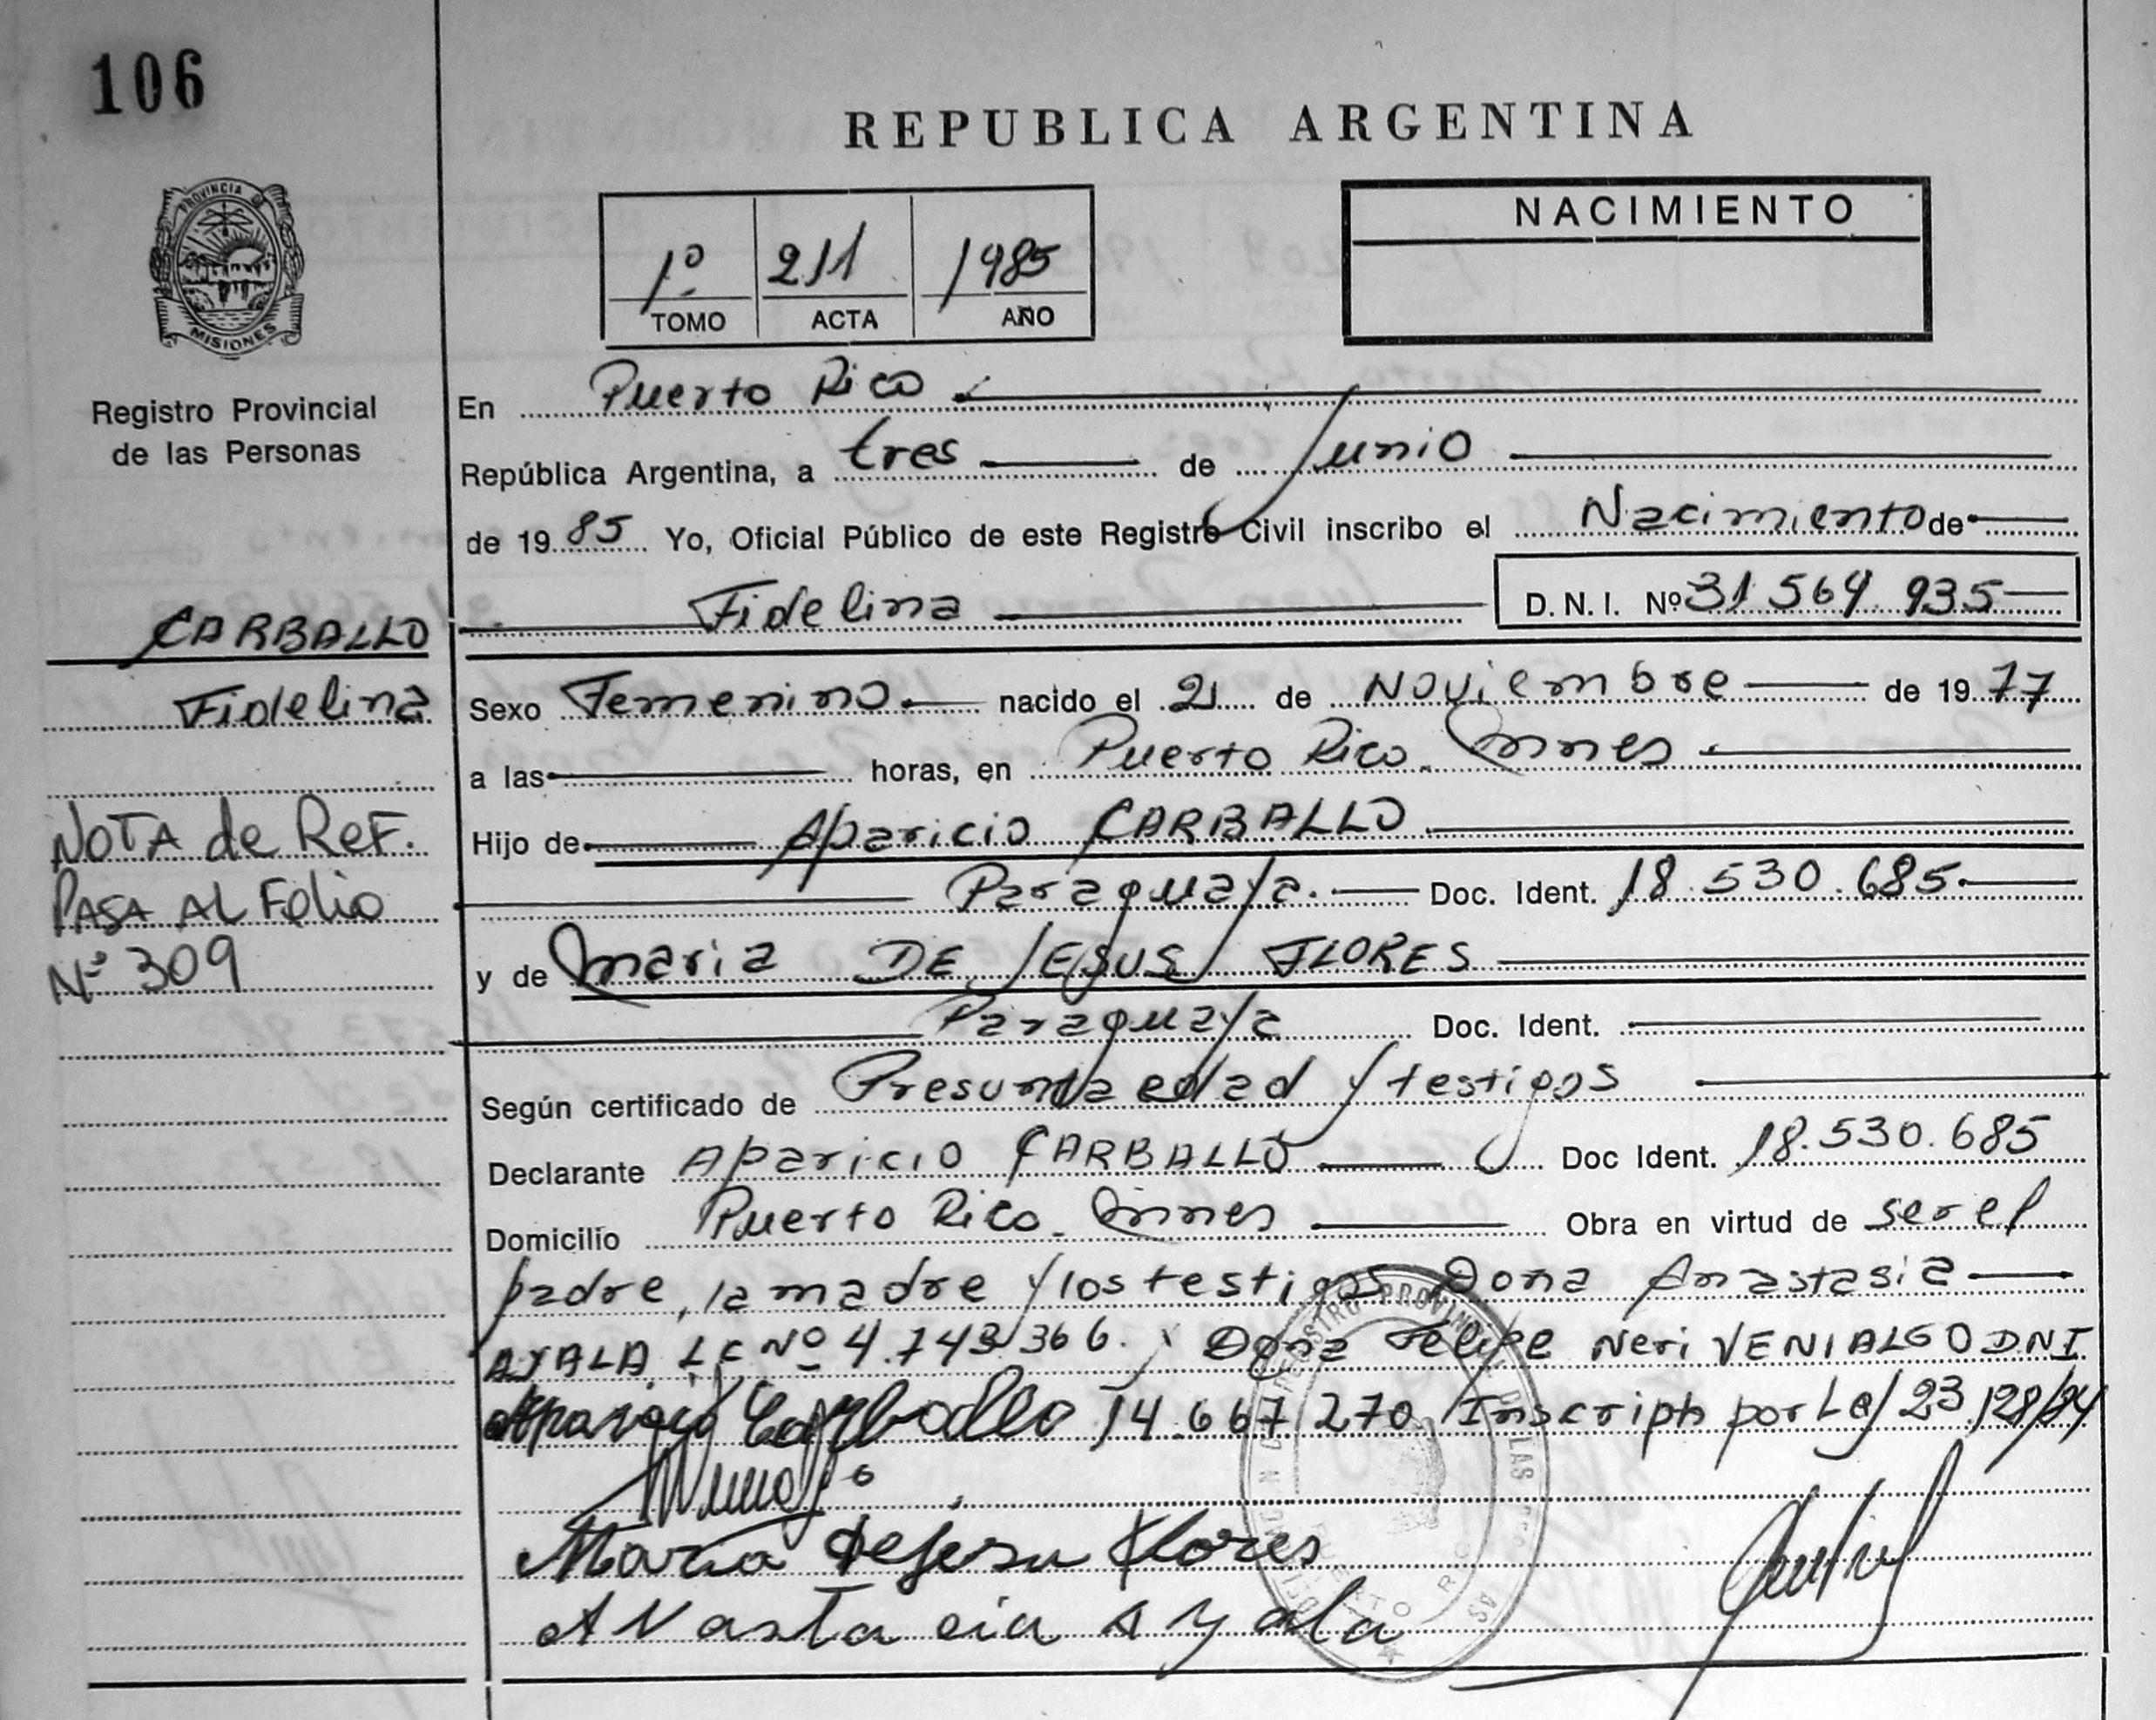 106
REPUBLICA ARGENTINA
PROVINCIA DE
MISIONES
Registro Provincial
de las Personas
1º 211 1985
TOMO ACTA AÑO
NACIMIENTO
En Puerto Rico
República Argentina, a tres de Junio
de 1985 Yo, Oficial Público de este Registro Civil inscribo el Nacimiento de
Fidelina D. N. I. Nº 31 564 935
CARBALLO
Fidelina
NOTA de REF.
PASA AL Folio
Nº 309
Sexo Femenino nacido el 21 de Noviembre de 1977
a las horas, en Puerto Rico. Mnes
Hijo de Aparicio CARBALLO
Paraguaya. Doc. Ident. 18.530.685
y de Maria DE JESUS FLORES
Paraguaya Doc. Ident.
Según certificado de Presunta edad y testigos
Declarante Aparicio CARBALLO Doc Ident. 18.530.685
Domicilio Puerto Rico. Mnes Obra en virtud de ser el
padre, la madre y los testigos Doña Anastasia
AYALA LC Nº 4.743 366. y Doña Felipe Neri VENIALGO DNI
14.667 270. Inscripto por Ley 23.128/84
Aparicio Carballo
Maria deJesu Flores
ANastacia Ayala